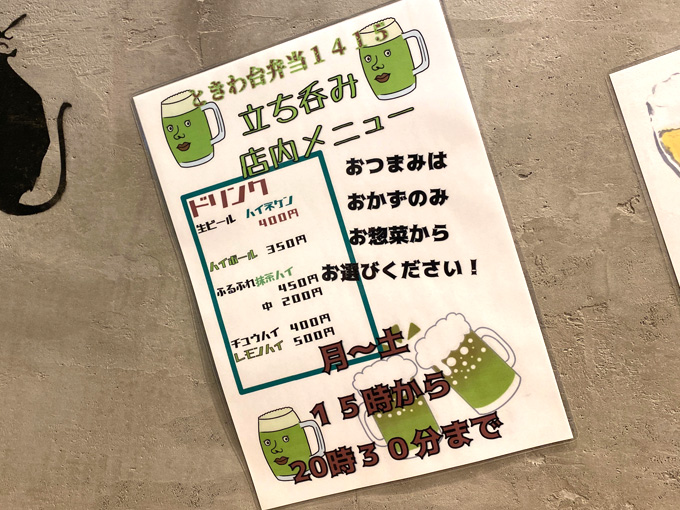 ときわ台弁当1415
立ち呑み
店内メニュー
ドリンク
生ビール ハイネケン
400円
ハイボール 350円
ぷるぷれ抹茶ハイ 450円
中 200円
チュウハイ 400円
レモンハイ 500円
おつまみは
おかずのみ
お惣菜から
お選びください！
月〜土
15時から
20時30分まで